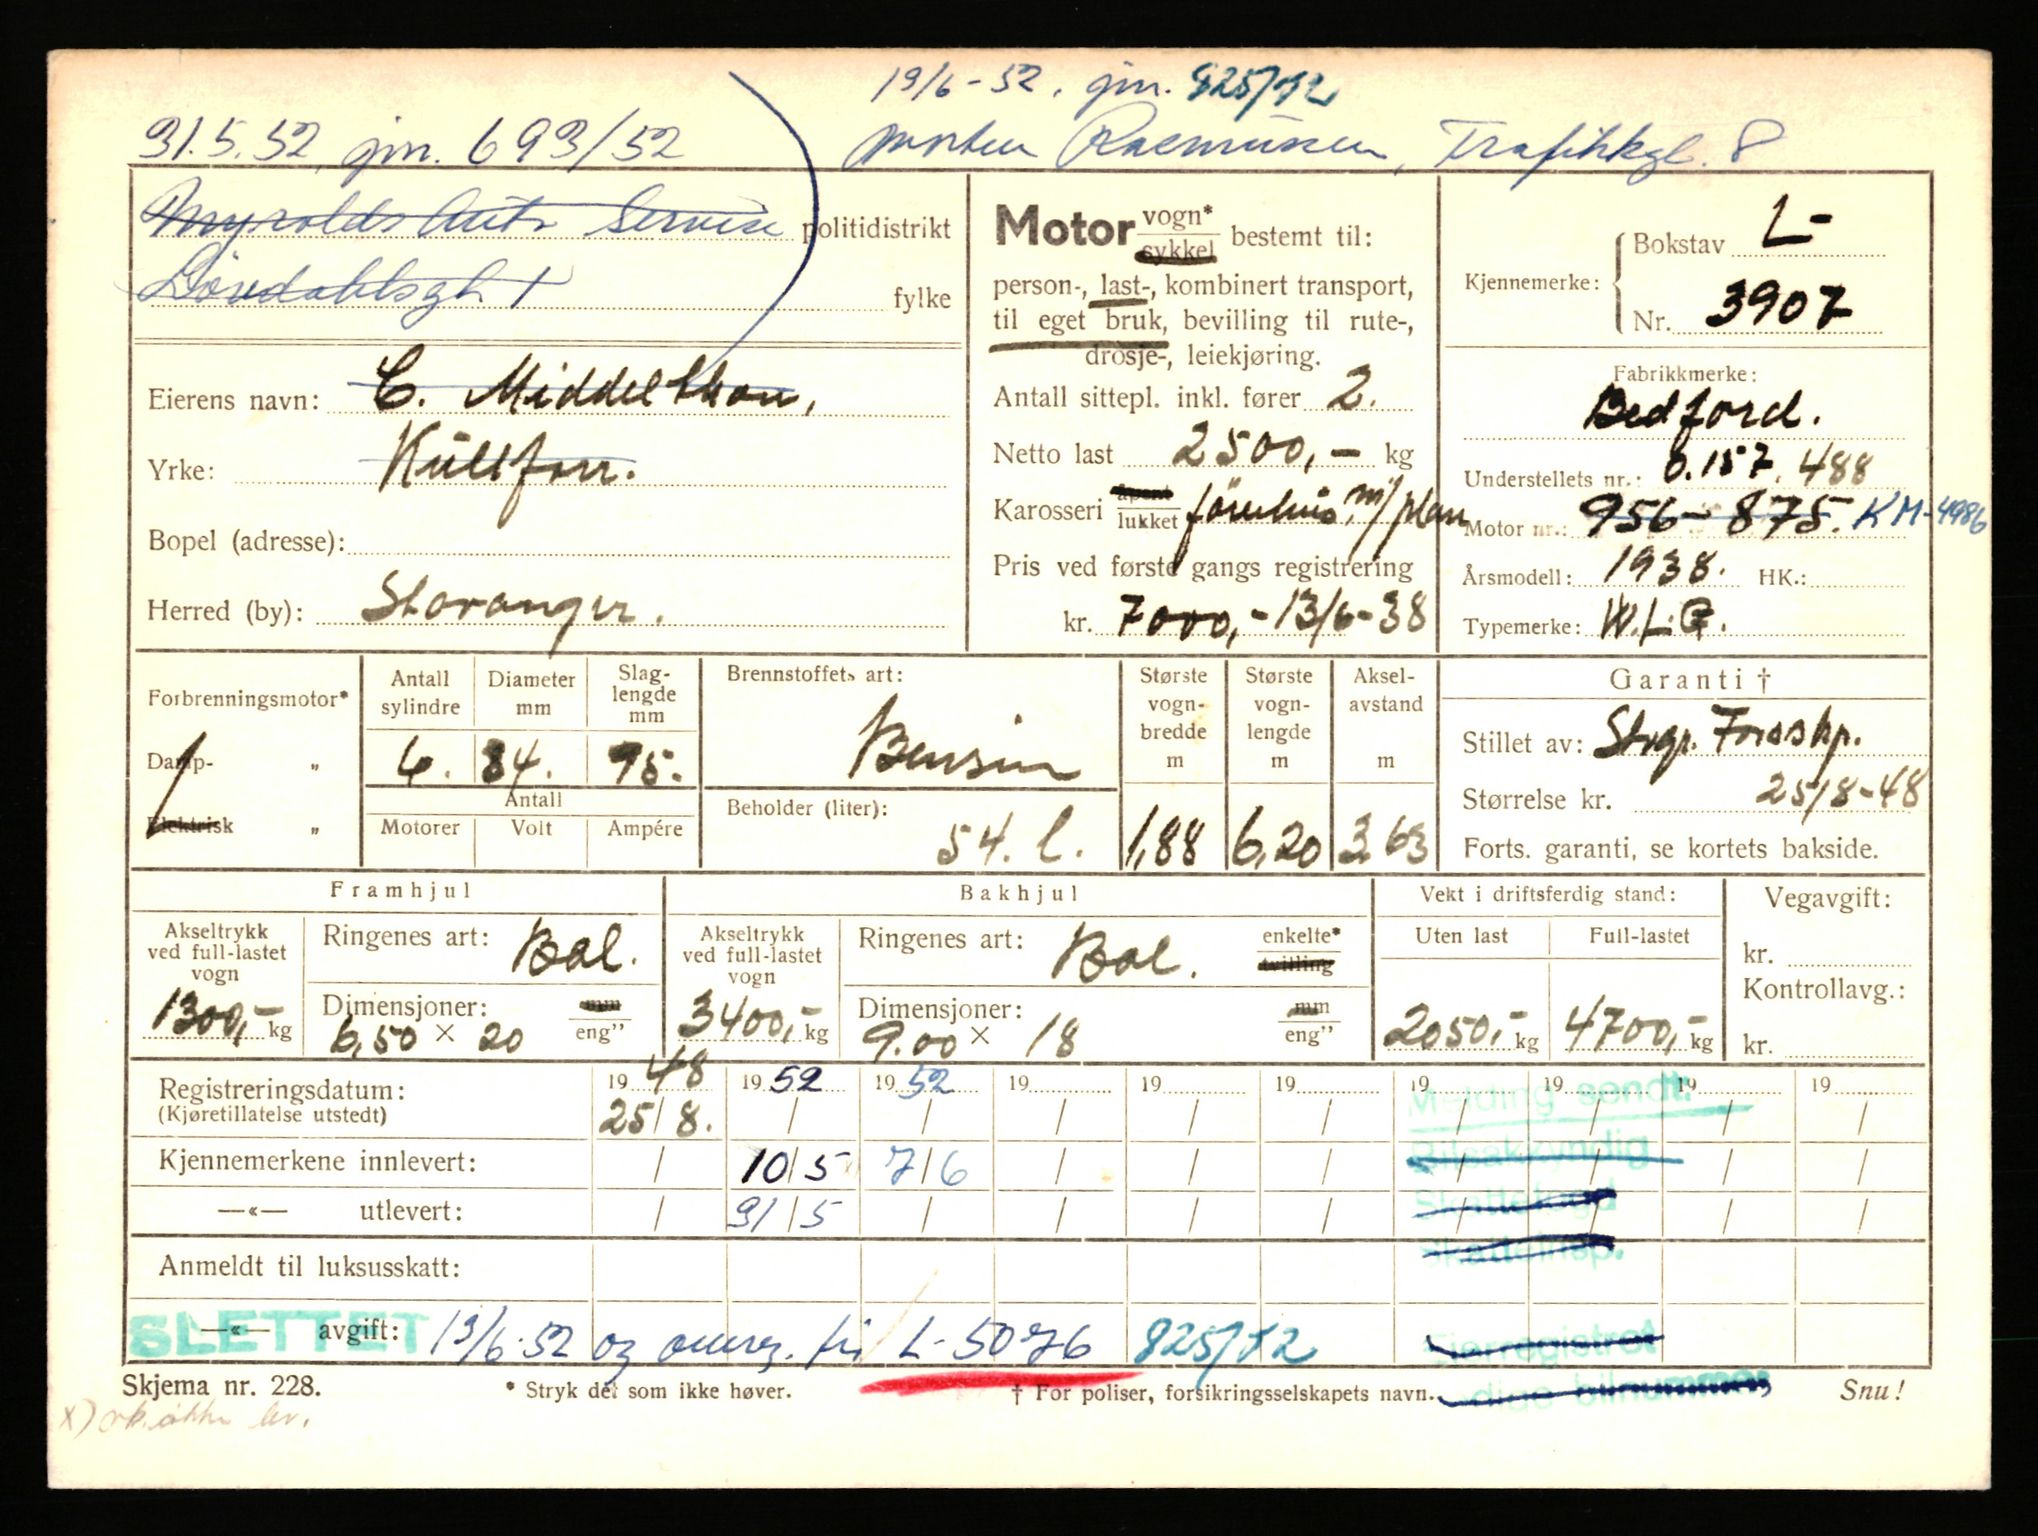 19/6-52. jnr. 825/52
31.5.52 jnr. 693/52
Morten Rasmussen, Trafikkgt. 8
Myrvolds Auto Service politidistrikt
Lövdahlsgt 1 fylke
Eierens navn: C. Middelthon,
Yrke: Kullforr.
Bopel (adresse):
Herred (by): Stavanger.
Motor vogn* sykkel bestemt til:
person-, last-, kombinert transport,
til eget bruk, bevilling til rute-,
drosje-, leiekjøring.
Antall sittepl. inkl. fører 2.
Netto last 2500,- kg
Karosseri åpent lukket förerhus m/plan
Pris ved første gangs registrering
kr. 7000,- 13/6-38
Kjennemerke: Bokstav L-
Nr. 3907
Fabrikkmerke:
Bedford.
Understellets nr.: 0.157.488
Motor nr.: 956-875. KM-4986
Årsmodell: 1938. HK.:
Typemerke: W.L.G.
Forbrenningsmotor*
Damp- „
Elektrisk „
Antall sylindre Diameter mm Slaglengde mm
6. 84. 95.
Antall
Motorer Volt Ampére
Brennstoffets art:
Bensin
Beholder (liter):
54. l.
Største vognbredde m Største vognlengde m Akselavstand m
1,88 6,20 3,63
Garanti †
Stillet av: Stvgr. Forsskp.
Størrelse kr. 25/8-48
Forts. garanti, se kortets bakside.
Framhjul
Akseltrykk ved full-lastet vogn
1300,- kg
Ringenes art: Bal.
Dimensjoner: mm
6,50 × 20 eng"
Bakhjul
Akseltrykk ved full-lastet vogn
3400,- kg
Ringenes art: Bal. enkelte* tvilling
Dimensjoner: mm
9.00 × 18 eng"
Vekt i driftsferdig stand:
Uten last Full-lastet
2050,- kg 4700,- kg
Vegavgift:
kr.
Kontrollavg.:
kr.
Registreringsdatum: 1948 1952 1952 19 19 19 19 19 19 19
(Kjøretillatelse utstedt) 25/8. / / / / / / / / /
Kjennemerkene innlevert: / 10/5 7/6 / / / / / / /
—«— utlevert: / 31/5 / / / / / / / /
Anmeldt til luksusskatt:
—«— avgift:
SLETTET 13/6-52 og omreg. til L-5076 825/52
Melding sendt:
Bilsakkyndig
Skattefogd
Skatteinsp.
Eierregistret
Skjema nr. 228. * Stryk det som ikke høver. † For poliser, forsikringsselskapets navn. Snu!